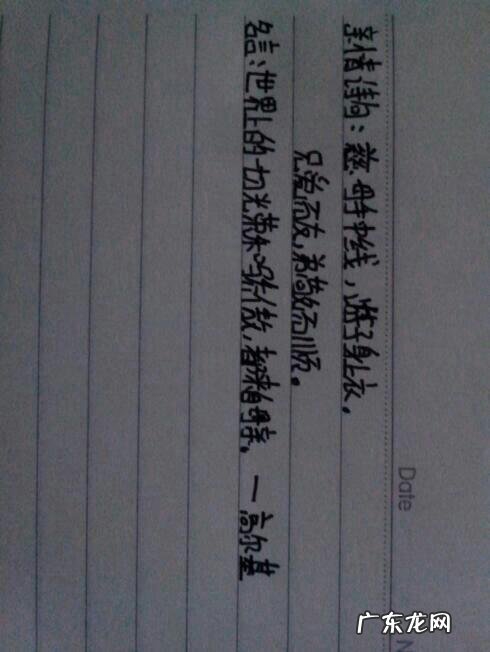 亲情诗句：慈母手中线，游子身上衣。
兄爱而友，弟敬而顺。
名言：世界上的一切光荣和骄傲，都来自母亲。—高尔基
Date
N
广东龙网